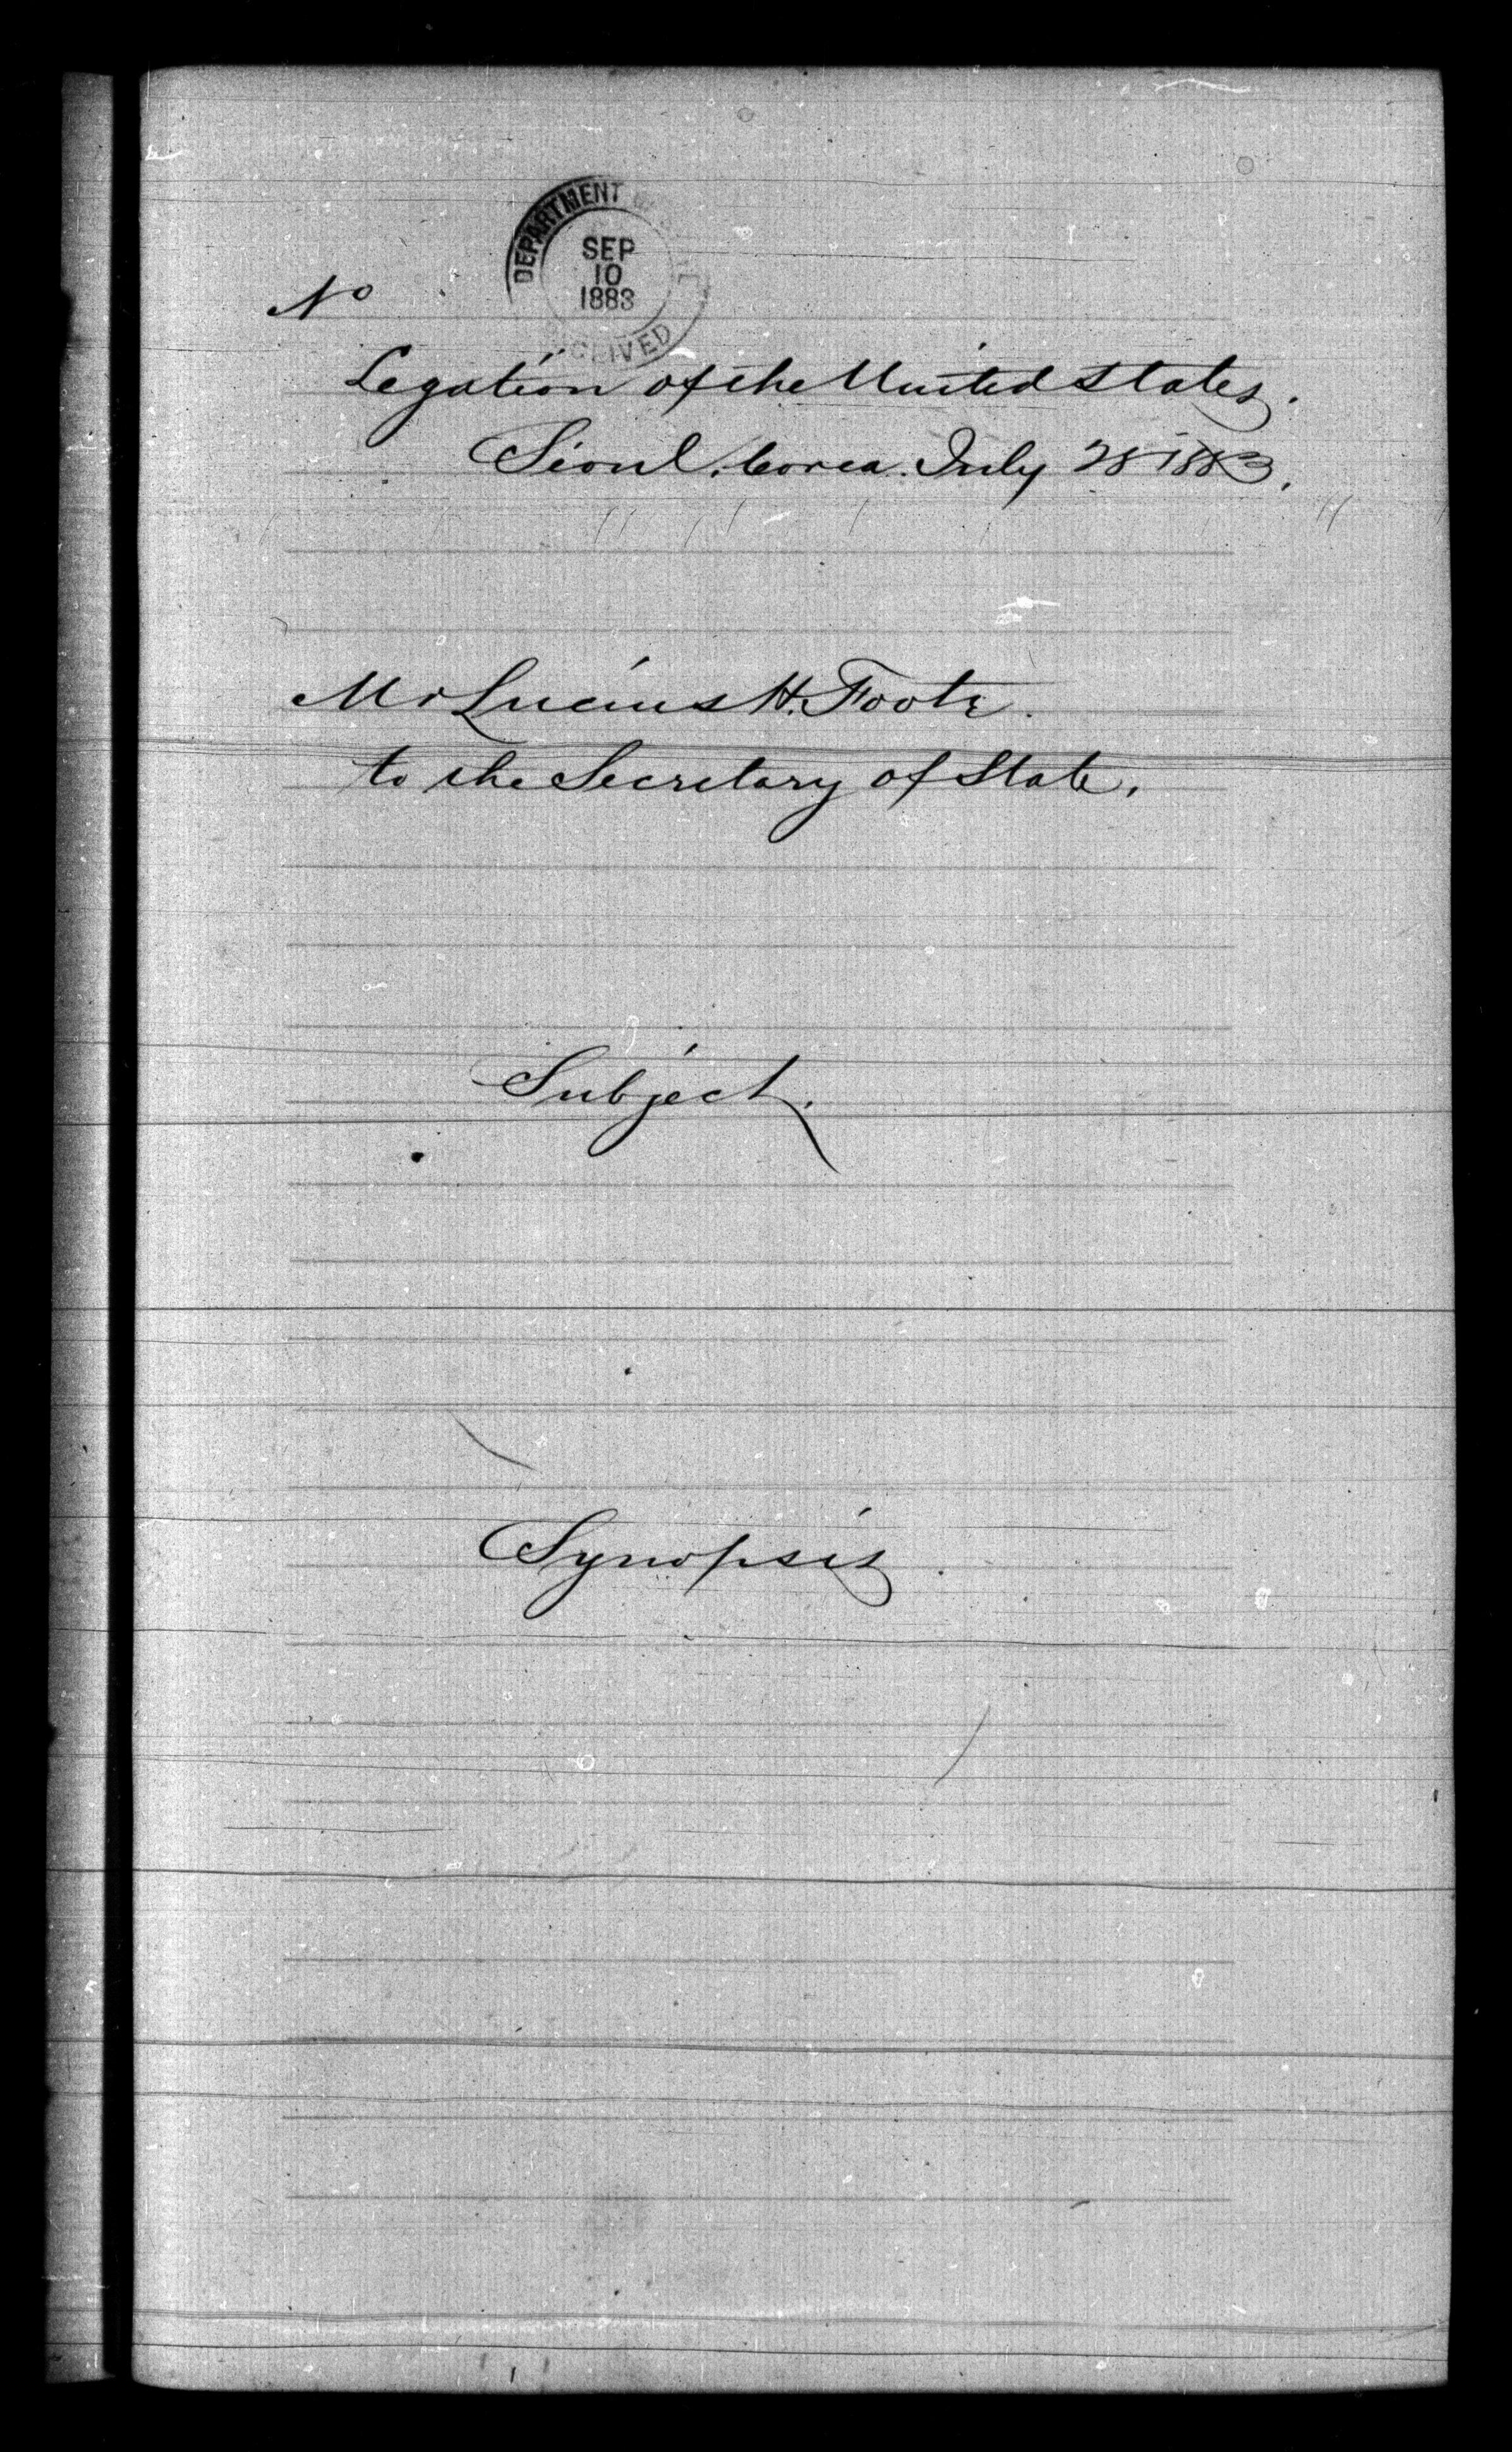 DEPARTMENT
SEP
10
1883
RECEIVED
No
Legation of the United States.
Séoul, Corea. July 28 1883.
Mr Lucius H. Foote.
to the Secretary of State.
Subject.
Synopsis.